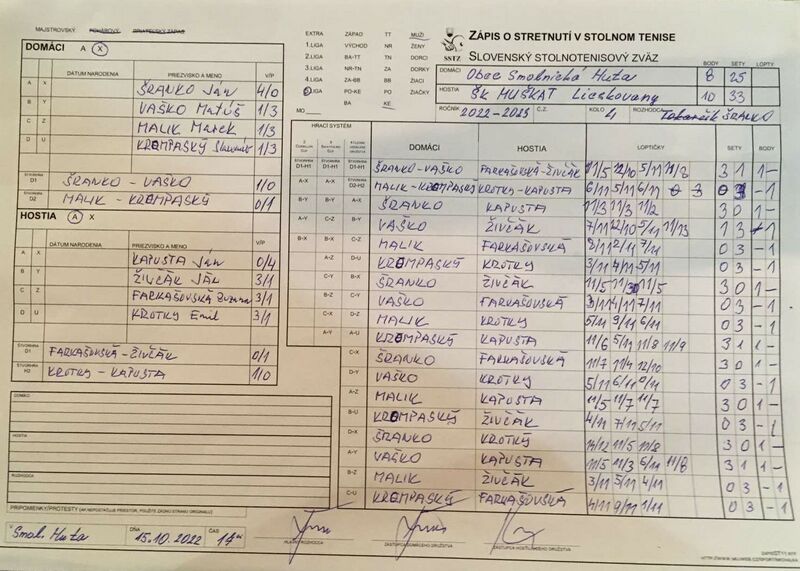 MAJSTROVSKÝ POHÁROVÝ PRIATEĽSKÝ ZÁPAS
DOMÁCI A X
DÁTUM NARODENIA PRIEZVISKO A MENO V/P
A X ŠRANKO Ján 4/0
B Y VAŠKO Matúš 1/3
C Z MALIK Marek 1/3
D U KROMPASKÝ 1/3
ŠTVORHRA D1 ŠRANKO - VAŠKO 1/0
ŠTVORHRA D2 MALIK - KROMPASKÝ 0/1
HOSTIA A X
DÁTUM NARODENIA PRIEZVISKO A MENO V/P
A X KAPUSTA Ján 0/4
B Y ŽIVČÁK Ján 3/1
C Z FARKAŠOVSKÁ Zuzana 3/1
D U KROTKY Emil 3/1
ŠTVORHRA FARKAŠOVSKÁ - ŽIVČÁK 0/1
ŠTVORHRA H2 KROTKY - KAPUSTA 1/0
DOMÁCI
HOSTIA
ROZHODCA
PRIPOMIENKY/PROTESTY (AK NEPOSTAČUJE PRIESTOR, POUŽITE ZADNÚ STRANU ORIGINÁLU)
V Smol. Huta DŇA 15.10.2022 ČAS 14
EXTRA ZÁPAD TT MUŽI
1.LIGA VÝCHOD NR ŽENY
2.LIGA BA-TT TN DORCI
3.LIGA NR-TN ZA DORKY
4.LIGA ZA-BB BB ŽIACI
5.LIGA PO-KE PO ŽIAČKY
BA KE
MO
SSTZ
ZÁPIS O STRETNUTÍ V STOLNOM TENISE
SLOVENSKÝ STOLNOTENISOVÝ ZVÄZ BODY SETY LOPTY
DOMÁCI Obec Smolnícka Huta 8 25
HOSTIA ŠK HUŠKAT Lieskovany 10 33
ROČNÍK 2022-2023 Č.Z. KOLO 4 ROZHODCA ŠRANKO
HRACÍ SYSTÉM DOMÁCI HOSTIA LOPTIČKY SETY BODY
D1-H1 ŠRANKO-VAŠKO FARKAŠOVSKÁ-ŽIVČÁK 11/5 12/10 5/11 11/8 3 1 1 -
D2-H2 MALIK-KROMPASKÝ KROTKY-KAPUSTA 6/11 5/11 6/11 0 3 - 1
A-X ŠRANKO KAPUSTA 11/3 11/3 11/2 3 0 1 -
B-Y VAŠKO ŽIVČÁK 7/11 12/10 5/11 11/13 1 3 - 1
MALIK FARKAŠOVSKÁ 0 3 - 1
D-U KROMPASKÝ KROTKY 3/11 4/11 5/11 0 3 - 1
ŠRANKO ŽIVČÁK 3 0 1 -
VAŠKO FARKAŠOVSKÁ 3/11 4/11 7/11 0 3 - 1
MALIK KROTKY 5/11 9/11 6/11 0 3 - 1
KROMPASKÝ KAPUSTA 11/6 5/11 11/8 11/9 3 1 1 -
ŠRANKO FARKAŠOVSKÁ 11/7 11/4 12/10 3 0 1 -
VAŠKO KROTKY 0 3 - 1
A-Z MALIK KAPUSTA 11/5 11/7 11/7 3 0 1 -
B-U KROMPASKÝ ŽIVČÁK 4/11 7/11 5/11 0 3 - 1
D-X ŠRANKO KROTKY 14/12 11/5 11/8 3 0 1 -
A-Y VAŠKO KAPUSTA 11/5 11/3 6/11 11/8 3 1 1 -
B-Z MALIK ŽIVČÁK 3/11 5/11 4/11 0 3 - 1
C-U KROMPASKÝ FARKAŠOVSKÁ 4/11 9/11 1/11 0 3 - 1
HLAVNÝ ROZHODCA ZÁSTUPCA DOMÁCEHO DRUŽSTVA ZÁSTUPCA HOSŤUJÚCEHO DRUŽSTVA